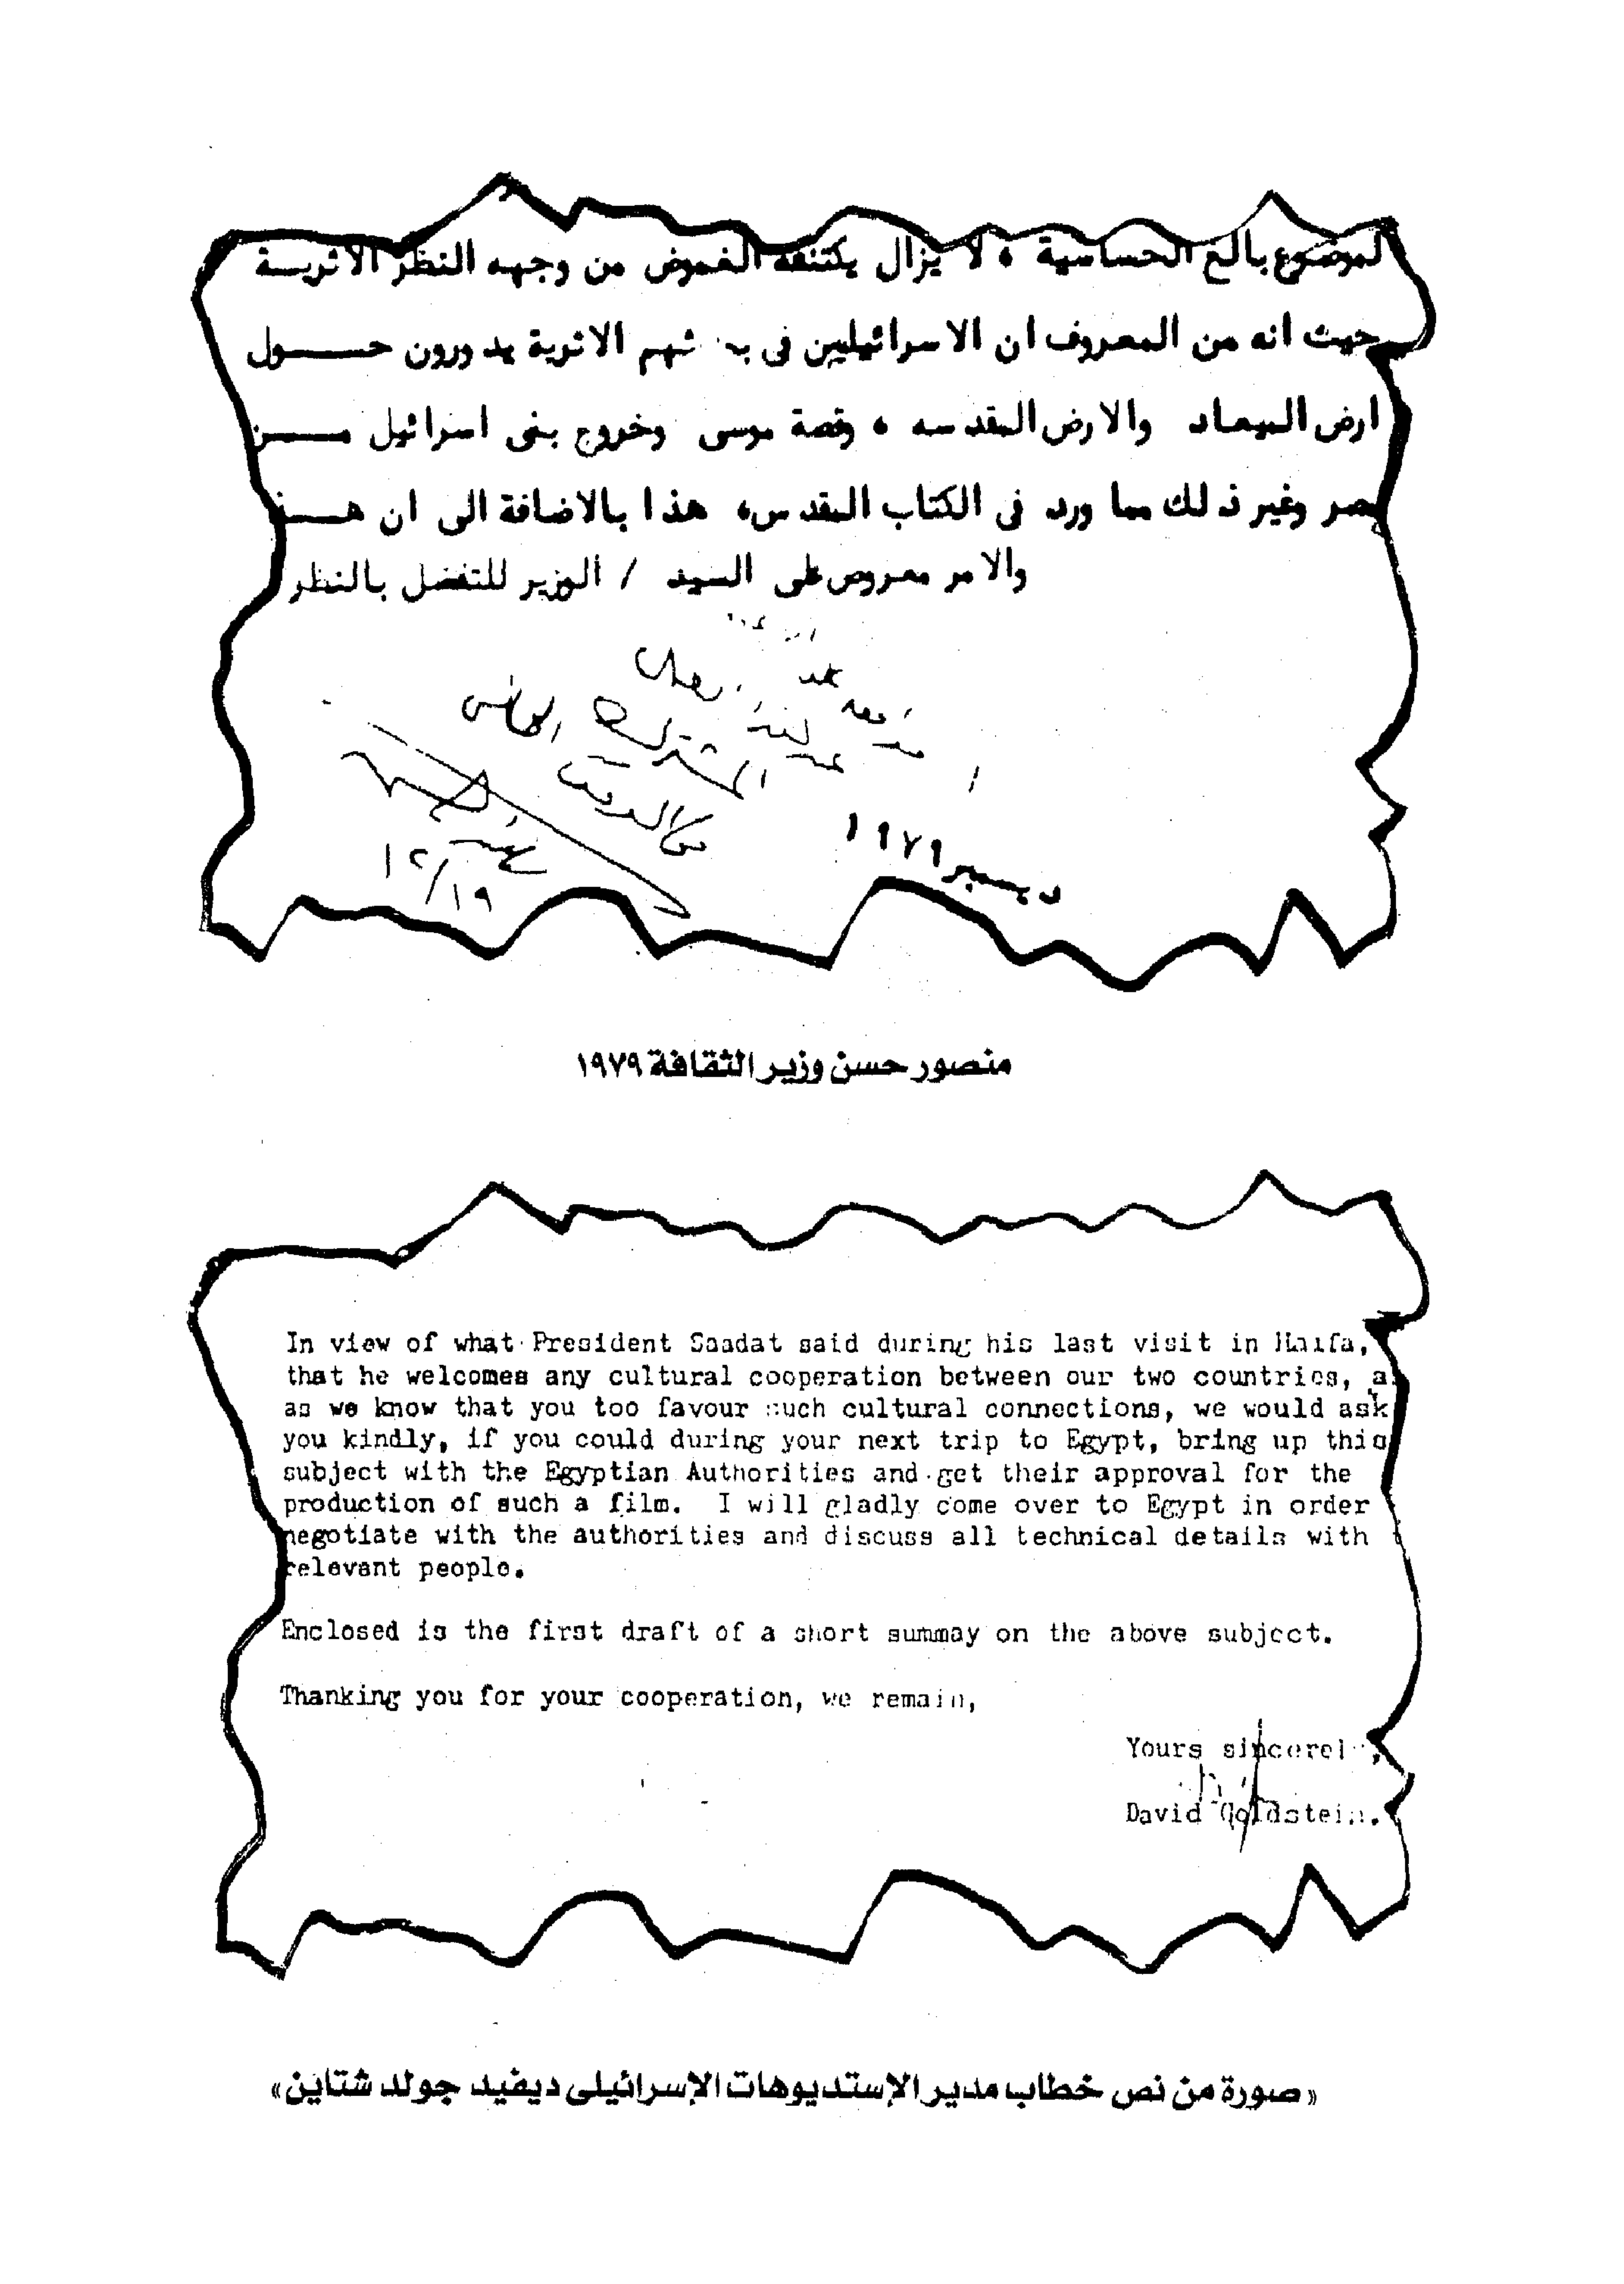 لموضوع بالغ الحساسية ، لا يزال يكتنفه الغموض من وجهه النظر الاثريـــة
حيث انه من المعروف ان الاسرائيليين فى شهم الاثرية يدورون حـــــول
ارض الميعاد والارض المقدسه ، وقصة موسى وخروج بنى اسرائيل مـــــن
مصر وغير ذلك مما ورد فى الكتاب المقدس، هذا بالاضافة الى ان هـــذ
والامر معروض على السيد / الوزير للتفضل بالنظر
ديسمبر ١٩٧٩
١٢/١٩
منصور حسن وزير الثقافة ١٩٧٩
In view of what President Saadat said during his last visit in Haifa,
that he welcomes any cultural cooperation between our two countries, a
as we know that you too favour such cultural connections, we would ask
you kindly, if you could during your next trip to Egypt, bring up this
subject with the Egyptian Authorities and get their approval for the
production of such a film. I will gladly come over to Egypt in order
negotiate with the authorities and discuss all technical details with
relevant people.
Enclosed is the first draft of a short summay on the above subject.
Thanking you for your cooperation, we remain,
Yours sincerely,
David Goldstein.
«صورة من نص خطاب مدير الإستديوهات الإسرائيلى ديفيد جولد شتاين»